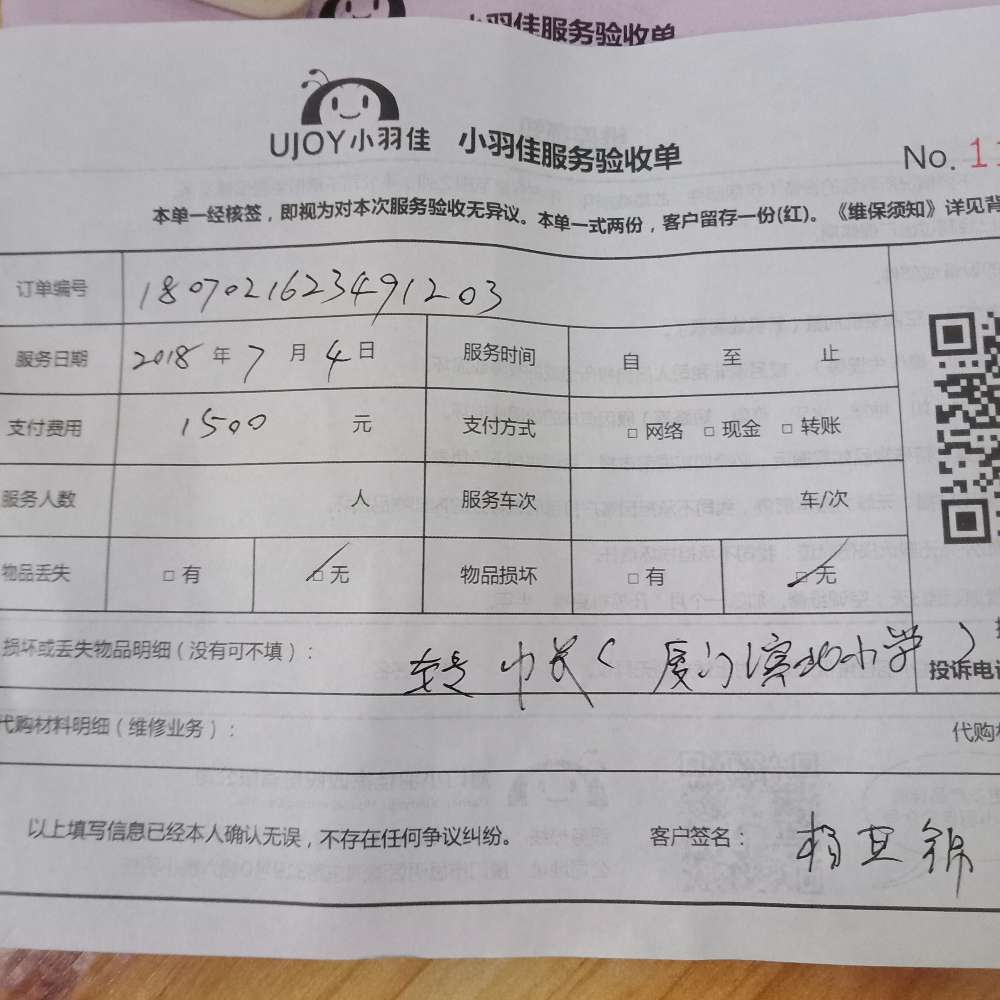 小羽佳服务验收单
UJOY小羽佳 小羽佳服务验收单
No. 11
本单一经核签，即视为对本次服务验收无异议。本单一式两份，客户留存一份(红)。《维保须知》详见背
订单编号 1807021623491203
服务日期 2018 年 7 月 4 日 服务时间 自 至 止
支付费用 1500 元 支付方式 □ 网络 □ 现金 □ 转账
服务人数 人 服务车次 车/次
物品丢失 □ 有 □ 无 物品损坏 □ 有 □ 无
损坏或丢失物品明细（没有可不填）：
(厦门滨北小学)
投诉电话
代购材料明细（维修业务）： 代购材
以上填写信息已经本人确认无误，不存在任何争议纠纷。 客户签名：